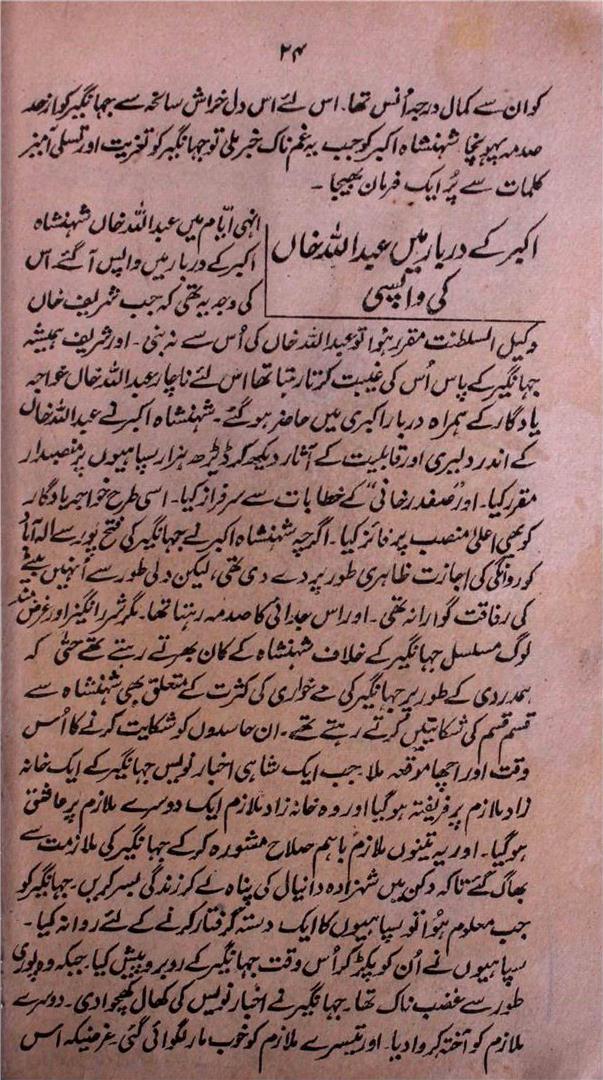 ۲۴
کو ان سے کمال درجہ اُنس تھا۔ اس لئے اس دل خراش سانحہ سے جہانگیر کو ازحد
صدمہ پہونچا شہنشاہ اکبر کو جب یہ غم ناک خبر ملی تو جہانگیر کو تعزیت اور تسلی آمیز
کلمات سے پُر ایک فرمان بھیجا۔
اکبر کے دربار میں عبداللہ خاں
کی واپسی
انہی ایّام میں عبداللہ خاں شہنشاہ
اکبر کے دربار میں واپس آگئے اس
کی وجہ یہ تھی کہ جب شریف خاں
وکیل السلطنت مقرر ہوا تو عبداللہ خاں کی اُس سے نہ بنی۔ اور شریف ہمیشہ
جہانگیر کے پاس اُس کی غیبت کرتا رہتا تھا اس لئے ناچار عبداللہ خاں خواجہ
یادگار کے ہمراہ دربار اکبری میں حاضر ہو گئے۔ شہنشاہ اکبر نے عبداللہ خاں
کے اندر دلیری اور قابلیت کے آثار دیکھ کر ڈیڑھ ہزار سپاہیوں پر منصبدار
مقرر کیا۔ اور "صفدر خانی" کے خطابات سے سرفراز کیا۔ اسی طرح خواجہ یادگار
کو بھی اعلیٰ منصب پر فائز کیا۔ اگرچہ شہنشاہ اکبر نے جہانگیر کی فتح پور سے الہ آباد
کو روانگی کی اجازت ظاہری طور پر دے دی تھی، لیکن دلی طور سے اُنہیں بیٹے
کی رفاقت گوارا نہ تھی۔ اور اس جدائی کا صدمہ رہتا تھا۔ مگر شر انگیز اور غرض مند
لوگ مسلسل جہانگیر کے خلاف شہنشاہ کے کان بھرتے رہتے تھے حتّٰی کہ
ہمدردی کے طور پر جہانگیر کی مے خواری کی کثرت کے متعلق بھی شہنشاہ سے
قسم قسم کی شکایتیں کرتے رہتے تھے۔ ان حاسدوں کو شکایت کرنے کا اُس
وقت اور اچھا موقعہ ملا۔ جب ایک شاہی اخبار نویس جہانگیر کے ایک خانہ
زاد ملازم پر فریفتہ ہو گیا اور وہ خانہ زاد ملازم ایک دوسرے ملازم پر عاشق
ہو گیا۔ اور یہ تینوں ملازم باہم صلاح مشورہ کر کے جہانگیر کی ملازمت سے
بھاگ گئے تاکہ دکن میں شہزادہ دانیال کی پناہ لے کر زندگی بسر کریں۔ جہانگیر کو
جب معلوم ہوا تو سپاہیوں کا ایک دستہ گرفتار کرنے کے لئے روانہ کیا۔
سپاہیوں نے اُن کو پکڑ کر اُس وقت جہانگیر کے روبرو پیش کیا۔ جبکہ وہ پوری
طور سے غضب ناک تھا۔ جہانگیر نے اخبار نویس کی کھال کھچوا دی۔ دوسرے
ملازم کو آختہ کروا دیا۔ اور تیسرے ملازم کو خوب مار لگوائی گئی۔ غرضیکہ اس